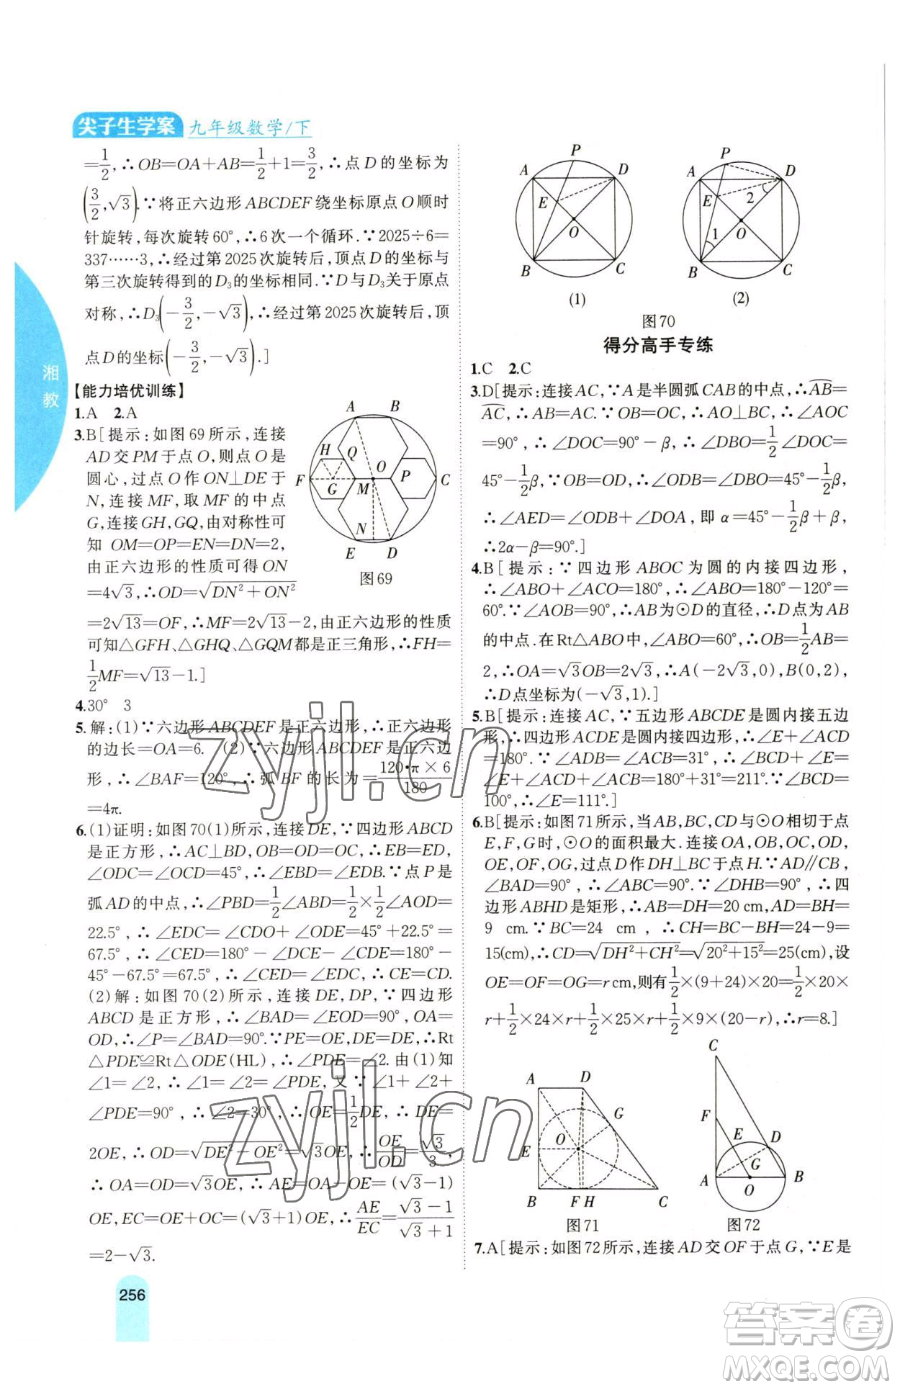 尖子生学案 九年级数学/下
=1/2,∴OB=OA+AB=1/2+1=3/2,∴点D的坐标为
(3/2,√3).∵将正六边形ABCDEF绕坐标原点O顺时
针旋转,每次旋转60°,∴6次一个循环.∵2025÷6=
337……3,∴经过第2025次旋转后,点D的坐标与
第三次旋转得到的D₃的坐标相同.∵D与D₃关于原点
对称,∴D₃(-3/2,-√3),∴经过第2025次旋转后,顶
点D的坐标(-3/2,-√3).]
【能力培优训练】
1.A 2.A
3.B[提示:如图69所示,连接
AD交PM于点O,则点O是
圆心,过点O作ON⊥DE于
N,连接MF,取MF的中点
G,连接GH,GQ,由对称性可
知OM=OP=EN=DN=2,
由正六边形的性质可得ON
=4√3,∴OD=√(DN²+ON²)
=2√13=OF,∴MF=2√13-2,由正六边形的性质可
知△GFH、△GHQ、△GQM都是正三角形,∴FH=
1/2MF=√13-1.]
A B H Q O F G M P C N E D
图69
4.30° 3
5.解:(1)∵六边形ABCDEF是正六边形,∴正六边形
的边长=OA=6. (2)∵六边形ABCDEF是正六边
形,∴∠BAF=120°,∴弧BF的长为=120·π×6/180
=4π.
6.(1)证明:如图70(1)所示,连接DE,∵四边形ABCD
是正方形,∴AC⊥BD,OB=OD,∴EB=ED,
∠ODC=∠OCD=45°,∴∠EBD=∠EDB.∵点P是
弧AD的中点,∴∠PBD=1/2∠ABD=1/2×1/2∠AOD=
22.5°,∴∠EDC=∠CDO+∠ODE=45°+22.5°=
67.5°,∴∠CED=180°-∠EDC-∠OCD=180°-
45°-67.5°=67.5°,∴∠CED=∠CDE,∴CE=CD.
(2)解:如图70(2)所示,连接DE,DP,∵四边形
ABCD是正方形,∴∠BAD=∠EOD=90°,OA=
OD,∴∠P=∠BAD=90°.∵PE=OE,DE=DE,∴Rt
△PDE≌Rt△ODE(HL),∴∠PDE=∠2.由(1)知
∠1=∠2,∴∠1=∠2=∠PDE,又∵∠1+∠2+
∠PDE=90°,∴∠2=30°,∴OE=1/2DE,∴DE=
2OE,∴OD=√(DE²-OE²)=√3OE,∴OE/OD=√3/3,
∴OA=OD=√3OE,∴AE=OA-OE=(√3-1)
OE,EC=OE+OC=(√3+1)OE,∴AE/EC=(√3-1)/(√3+1)
=2-√3.
P A D E O B C
(1)
P A D E 2 1 O B C
(2)
图70
得分高手专练
1.C 2.C
3.D[提示:连接AC,∵A是半圆弧CAB的中点,∴AB=
AC,∴AB=AC.∵OB=OC,∴AO⊥BC,∴∠AOC
=90°,∴∠DOC=90°-β,∴∠DBO=1/2∠DOC=
45°-1/2β,∵OD=OB,∴∠ODB=∠DBO=45°-1/2β,
∴∠AED=∠ODB+∠DOA,即α=45°-1/2β+β,
∴2α-β=90°.]
4.B[提示:∵四边形ABOC为圆的内接四边形,
∴∠ABO+∠ACO=180°,∴∠ABO=180°-120°=
60°.∵∠AOB=90°,∴AB为⊙D的直径,∴D点为AB
的中点.在Rt△ABO中,∵∠ABO=60°,∴OB=1/2AB=
2,∴OA=√3OB=2√3,∴A(-2√3,0),B(0,2),
∴D点坐标为(-√3,1).]
5.B[提示:连接AC,∵五边形ABCDE是圆内接五边
形,∴四边形ACDE是圆内接四边形,∴∠E+∠ACD
=180°.∵∠ADB=31°,∴∠ACB=∠ADB=31°,∴∠E+
∠ACD+∠ACB=180°+31°=211°.∵∠BCD=
100°,∴∠E=111°.]
6.B[提示:如图71所示,当AB,BC,CD与⊙O相切于点
E,F,G时,⊙O的面积最大.连接OA,OB,OC,OD,
OE,OF,OG,过点D作DH⊥BC于点H.∵AD∥CB,
∠BAD=90°,∴∠ABC=90°.∵∠DHB=90°,∴四
边形ABHD是矩形,∴AB=DH=20 cm,AD=BH=
9 cm.∵BC=24 cm,∴CH=BC-BH=24-9=
15(cm),∴CD=√(DH²+CH²)=√(20²+15²)=25(cm),设
OE=OF=OG=r cm,则有1/2×(9+24)×20=1/2×20×
r+1/2×24×r+1/2×25×r+1/2×9×(20-r),∴r=8.]
A D G E O B F H C
图71
C F E D G A O B
图72
7.A[提示:如图72所示,连接AD交OF于点G,∵E是
湘教
256
zyjl.cn
zyjl.cn
答案圈
MXQE.COM